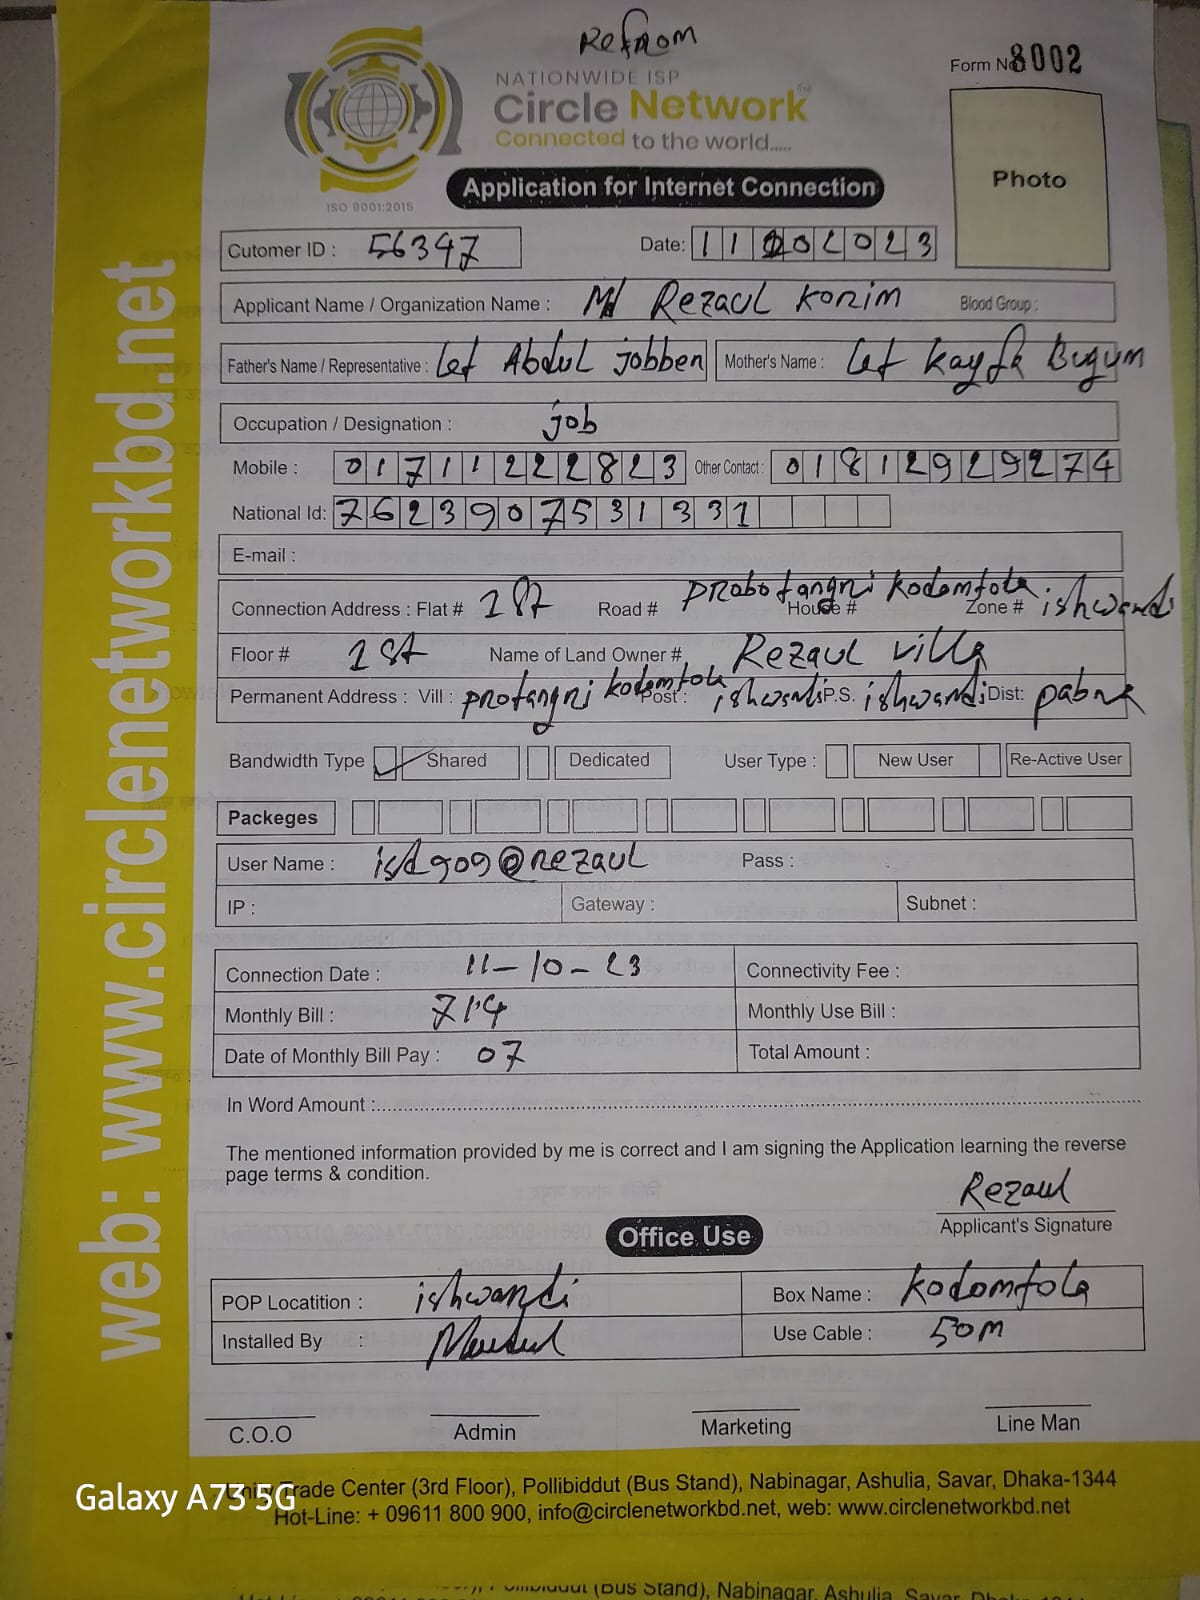 Refrom
NATIONWIDE ISP
Circle Network
Connected to the world.....
ISO 9001:2015
Application for Internet Connection
Form No 8002
Photo
Cutomer ID : 56347
Date: 11 10 2023
Applicant Name / Organization Name : Md Rezaul Korim Blood Group :
Father's Name / Representative : Let Abdul jobben Mother's Name : Let Begum
Occupation / Designation : job
Mobile : 01711222823 Other Contact : 01812929274
National Id: 7623907531331
E-mail :
Connection Address : Flat # 1st Road # House # kodomtola Zone # ishwardi
Floor # 1st Name of Land Owner # Rezaul villa
Permanent Address : Vill : kodomtola Post : ishwardi P.S. ishwardi Dist: pabna
Bandwidth Type Shared Dedicated User Type : New User Re-Active User
Packeges
User Name : isd909@rezaul Pass :
IP : Gateway : Subnet :
Connection Date : 11-10-23 Connectivity Fee :
Monthly Bill : 714 Monthly Use Bill :
Date of Monthly Bill Pay : 07 Total Amount :
In Word Amount :
The mentioned information provided by me is correct and I am signing the Application learning the reverse
page terms & condition.
Rezaul
Applicant's Signature
Office Use
POP Locatition : ishwardi Box Name : Kodomtola
Installed By : Use Cable : 50M
C.O.O Admin Marketing Line Man
Trade Center (3rd Floor), Pollibiddut (Bus Stand), Nabinagar, Ashulia, Savar, Dhaka-1344
Hot-Line: + 09611 800 900, info@circlenetworkbd.net, web: www.circlenetworkbd.net
web: www.circlenetworkbd.net
Galaxy A73 5G
(Bus Stand), Nabinagar, Ashulia, Savar,